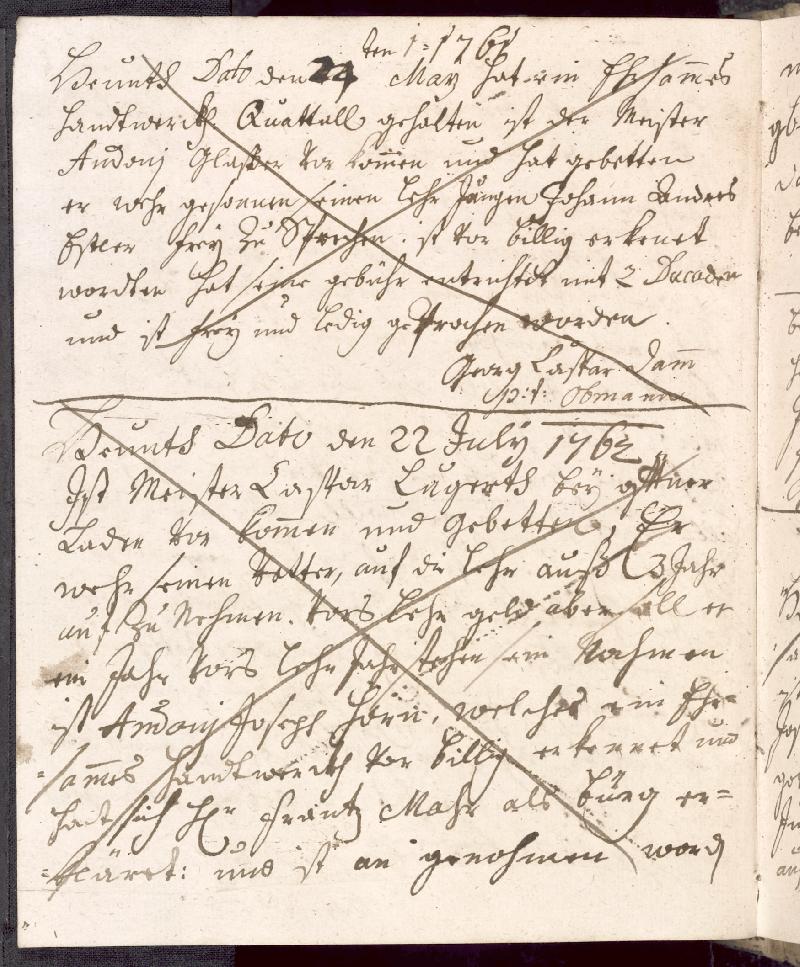 ten 1= 1761
Heunth Dato den 24 May hat ein Ehrsammes
Handtwerckh Quattall gehalten ist der Meister
Andonj Glasser vor kommen und hat gebetten
er wehr gesonnen seinen lehr Jungen Johann Andres
Estler frey zu Sprechen. ist vor billig erkenet
wordten hat seine gebühr entrichtet mit 2 Ducaden
und ist frey und ledig gesprochen worden
Georg Caspar Damm
p: t: Obmann
Heunth Dato den 22 July 1762
Ist Meister Caspar Lugerth bey offner
Laden vor kommen und Gebetten, Er
wehr seinen Vetter, auf die lehr auß 3 Jahr
auf zu Nehmen. Vors lehr geld aber soll er
ein Jahr vors lehr Jahr stehen sein Nahmen
ist Andonj Joseph Horn, welches ein Ehr=
=sammes Handtwerckh vor billig erkennet und
hat sich Hr Frantz Mahr als bürg er=
=kläret: und ist an genohmen word